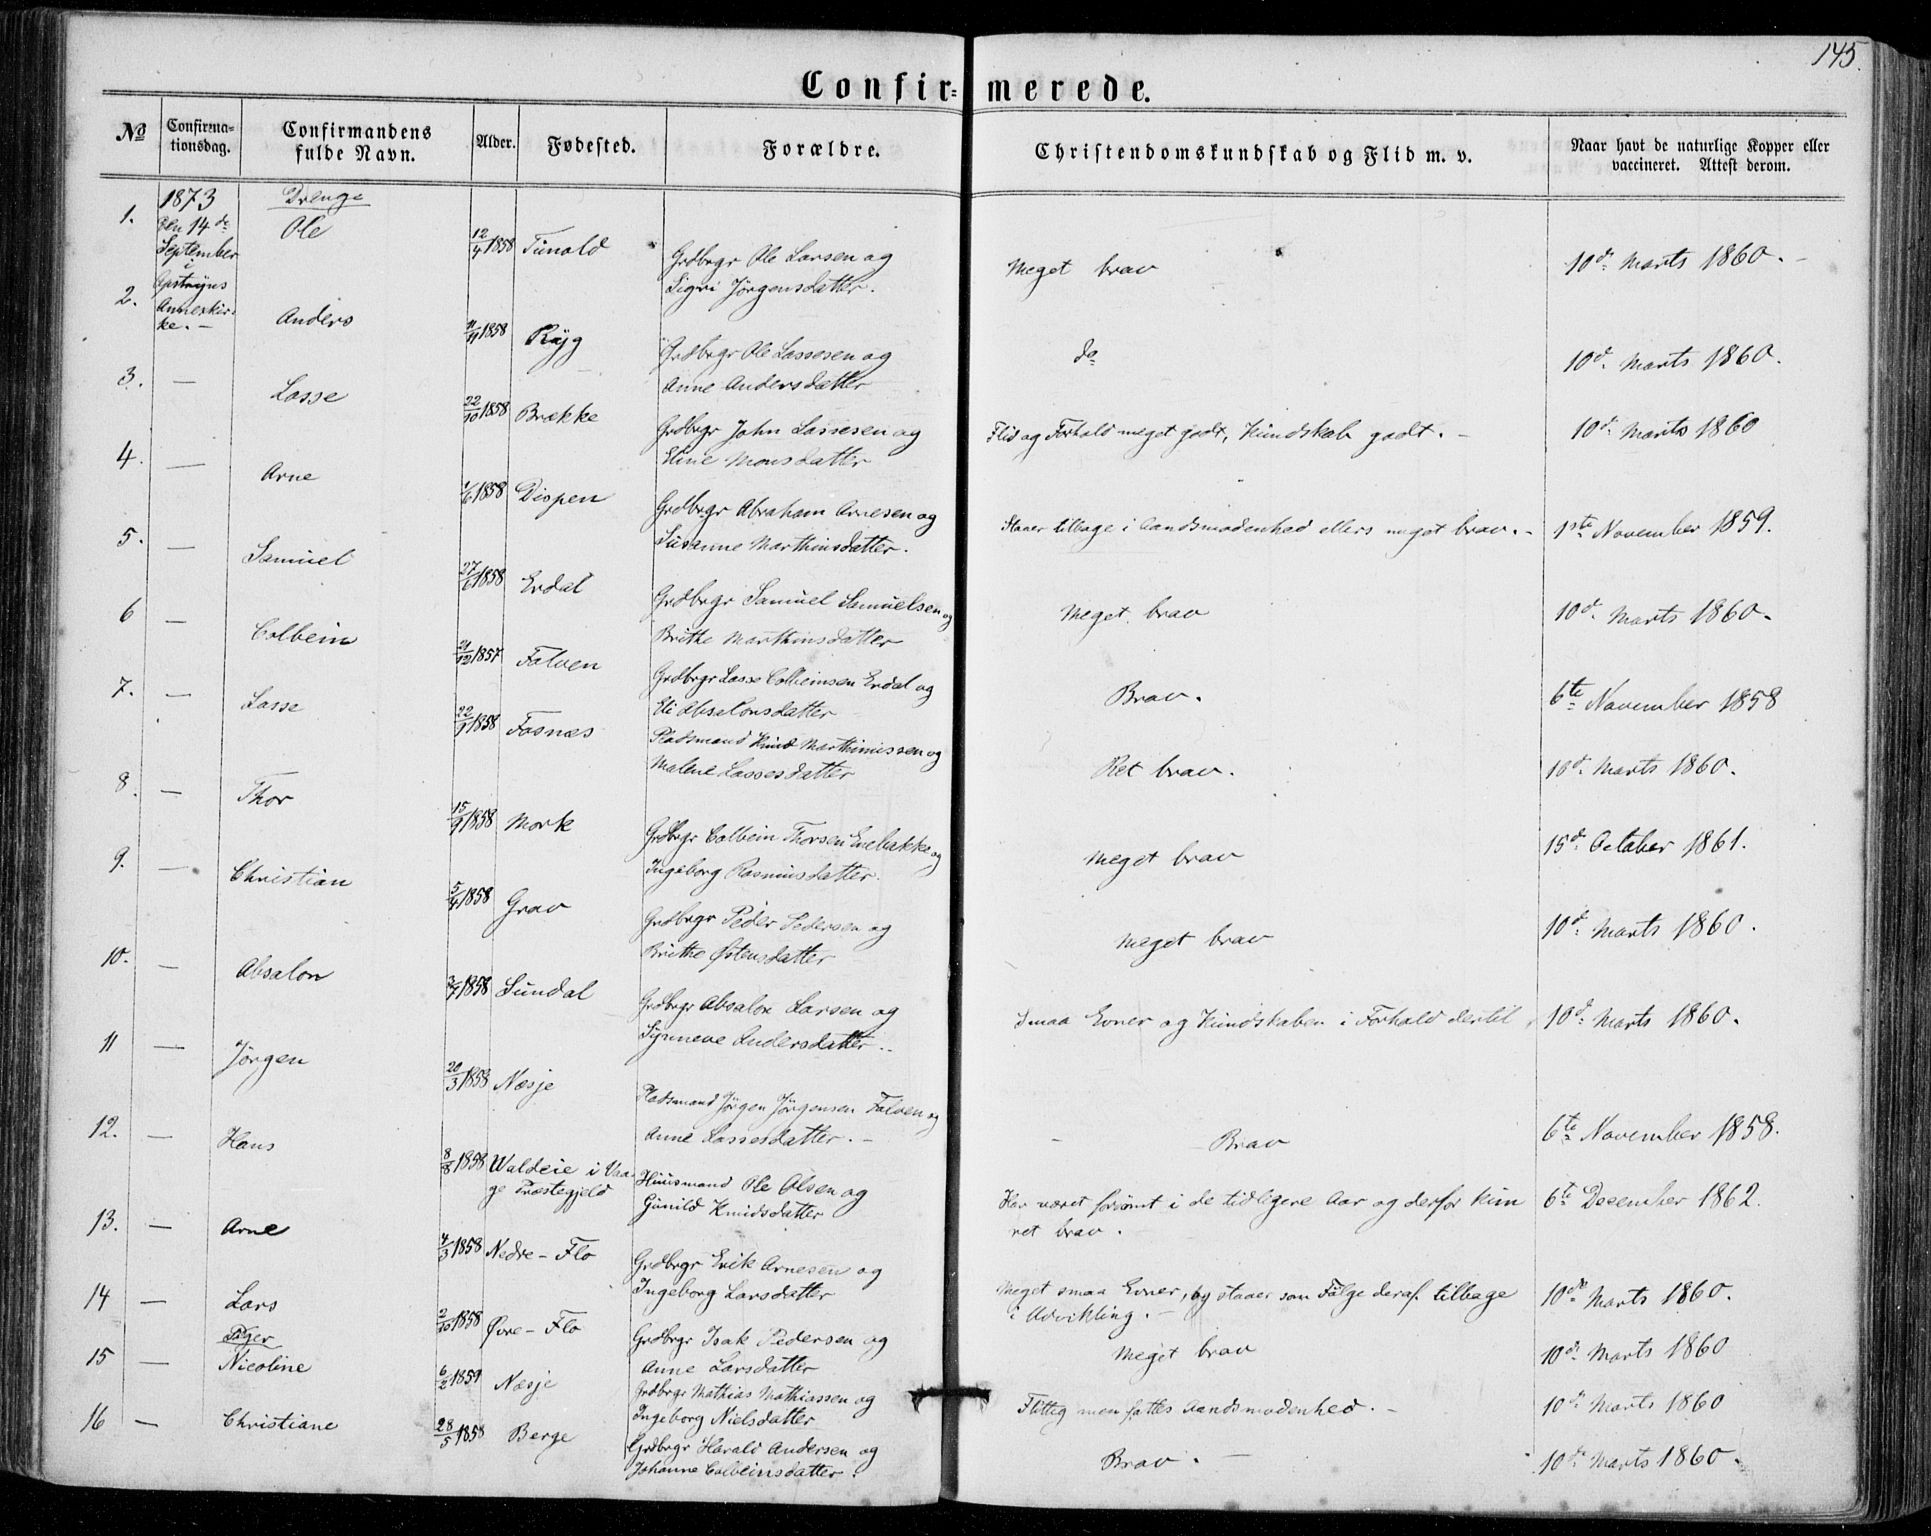 145.
Confirmerede.
No
Confirmationsdag.
Confirmandens fulde Navn.
Alder.
Fødested.
Forældre.
Christendomskundskab og Flid m. v.
Naar havt de naturlige Kopper eller vaccineret. Attest derom.
1873
Drenge
Den 14de September i Opstryns Anneskirke. –
1. Ole 12/4 1858 Tunold Grdbrgr Ole Larsen og
Sigri Jørgensdatter. Meget brav 10de Marts 1860. –
2. Anders 1858 Ryg Grdbrgr Ole Lassesen og
Anne Andersdatter do 10de Marts 1860.
3. — Lasse 22/10 1858 Brække Grdbrgr John Lassesen og
Eline Monsdatter Flid og Forhold meget godt, Kundskab godt. – 10de Marts 1860
4. — Arne 1/6 1858 Dispen Grdbrgr Abraham Arnesen og
Susanne Marthinsdatter. Staaer tilbage i Aandsmodenhed ellers meget brav. – 1ste November 1859.
5. — Samuel 27/6 1858 Erdal Grdbrgr Samuel Samuelsen og
Brithe Marthinsdatter Meget brav 10de Marts 1860.
6 — Colbein 21/12 1857 Folven Grdbrgr Lasse Colbeinsen Erdal og
Eli Absalonsdatter Brav. 6te November 1858
7. — Lasse 22/9 1858 Fosnæs Pladsmand Knud Marthinussen og
Malene Lassesdatter Ret brav. 10de Marts 1860.
8. — Thor 15/9 1858 Mork Grdbrgr Colbein Thorsen Enebakke og
Ingeborg Rasmusdatter. Meget brav 15de October 1861.
9. — Christian 5/4 1858 Grav Grdbrgr Peder Pedersen og
Brithe Østensdatter Meget brav 10de Marts 1860.
10. — Absalon 3/7 1858 Sundal Grdbrgr Absalon Larsen og
Synneve Andersdatter. Smaa Evner og Kundskaben i Forhold dertil, 10de Marts 1860.
11 — Jørgen 20/3 1858 Næsje Pladsmand Jørgen Jørgensen Folven og
Anne Lassesdatter. – Brav 6te November 1858.
12. — Hans 8/8 1858 Waldeie i Vaage Præstegjeld Huusmand Ole Olsen og
Gunild Knudsdatter Har været forsømt i de tidligere Aar og derfor kun
ret brav. 6te December 1862.
13. — Arne 4/3 1858 Nedre-Flo Grdbrgr Erik Arnesen og
Ingeborg Larsdatter Meget smaa Evner, og staaer som Følge deraf tilbage
i Udvikling. – 10de Marts 1860.
14 — Lars 2/10 1858 Øvre-Flo Grdbrgr Isak Pedersen og
Anne Larsdatter Meget brav 10de Marts 1860
Piger
15 — Nicoline 6/2 1859 Næsje Grdbrgr Mathias Mathiassen og
Ingeborg Nielsdatter Flittig men fattes Aandsmodenhed. – 10de Marts 1860
16 — Christiane 28/5 1858 Berge Grdbrgr Harald Andersen og
Johanne Colbeinsdatter. Brav. – 10de Marts 1860.